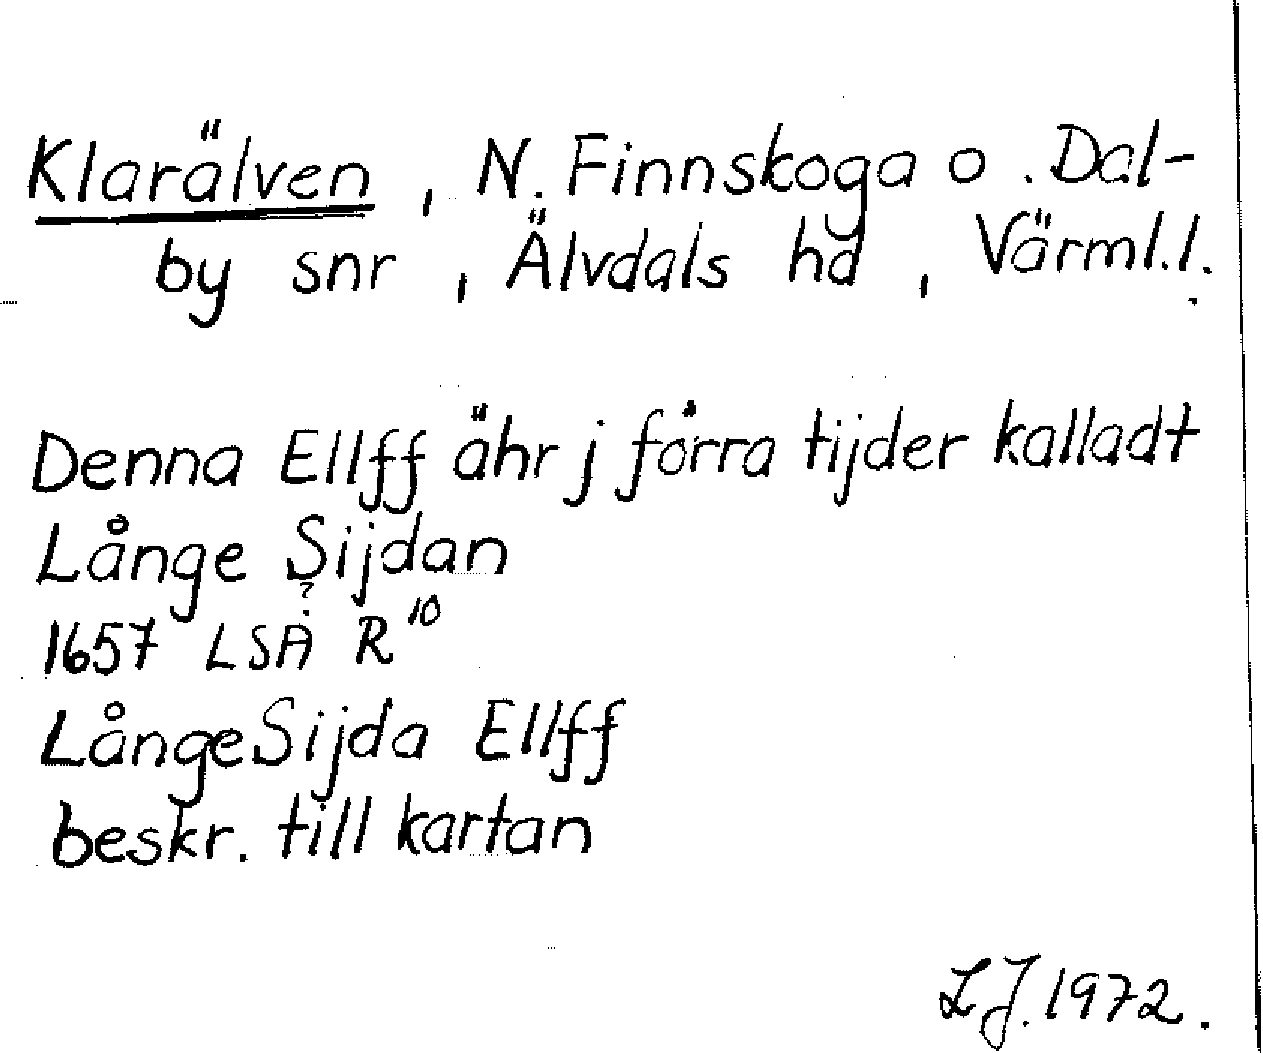 Klarälven, N. Finnskoga o. Dal-
by snr, Älvdals hd, Värml.l.
Denna Ellff ähr j förra tijder kalladt
Långe Sijdan
?
1657 LSA R10
LångeSijda Ellff
beskr. till kartan
LJ. 1972.